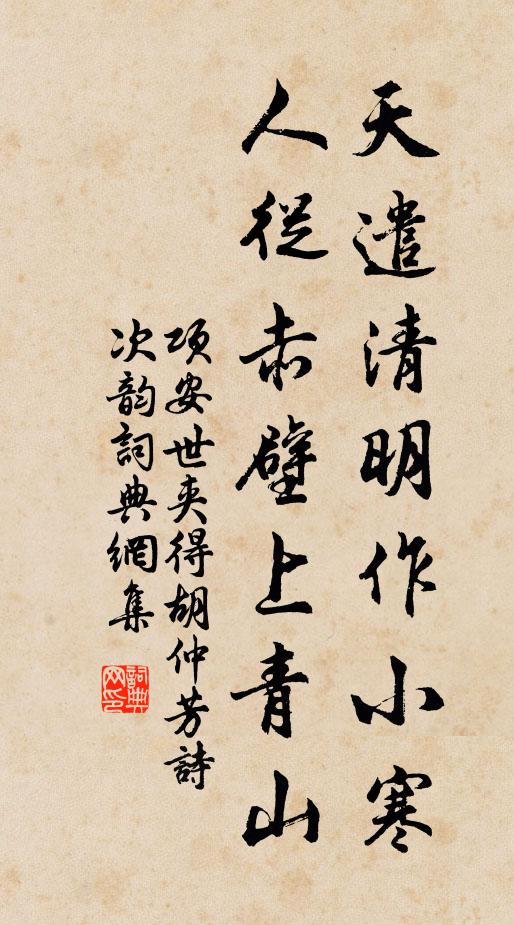 天遣清明作小寒
人從赤壁上青山
項安世夾得胡仲芳詩
次韵詞典網集
詞典
网印